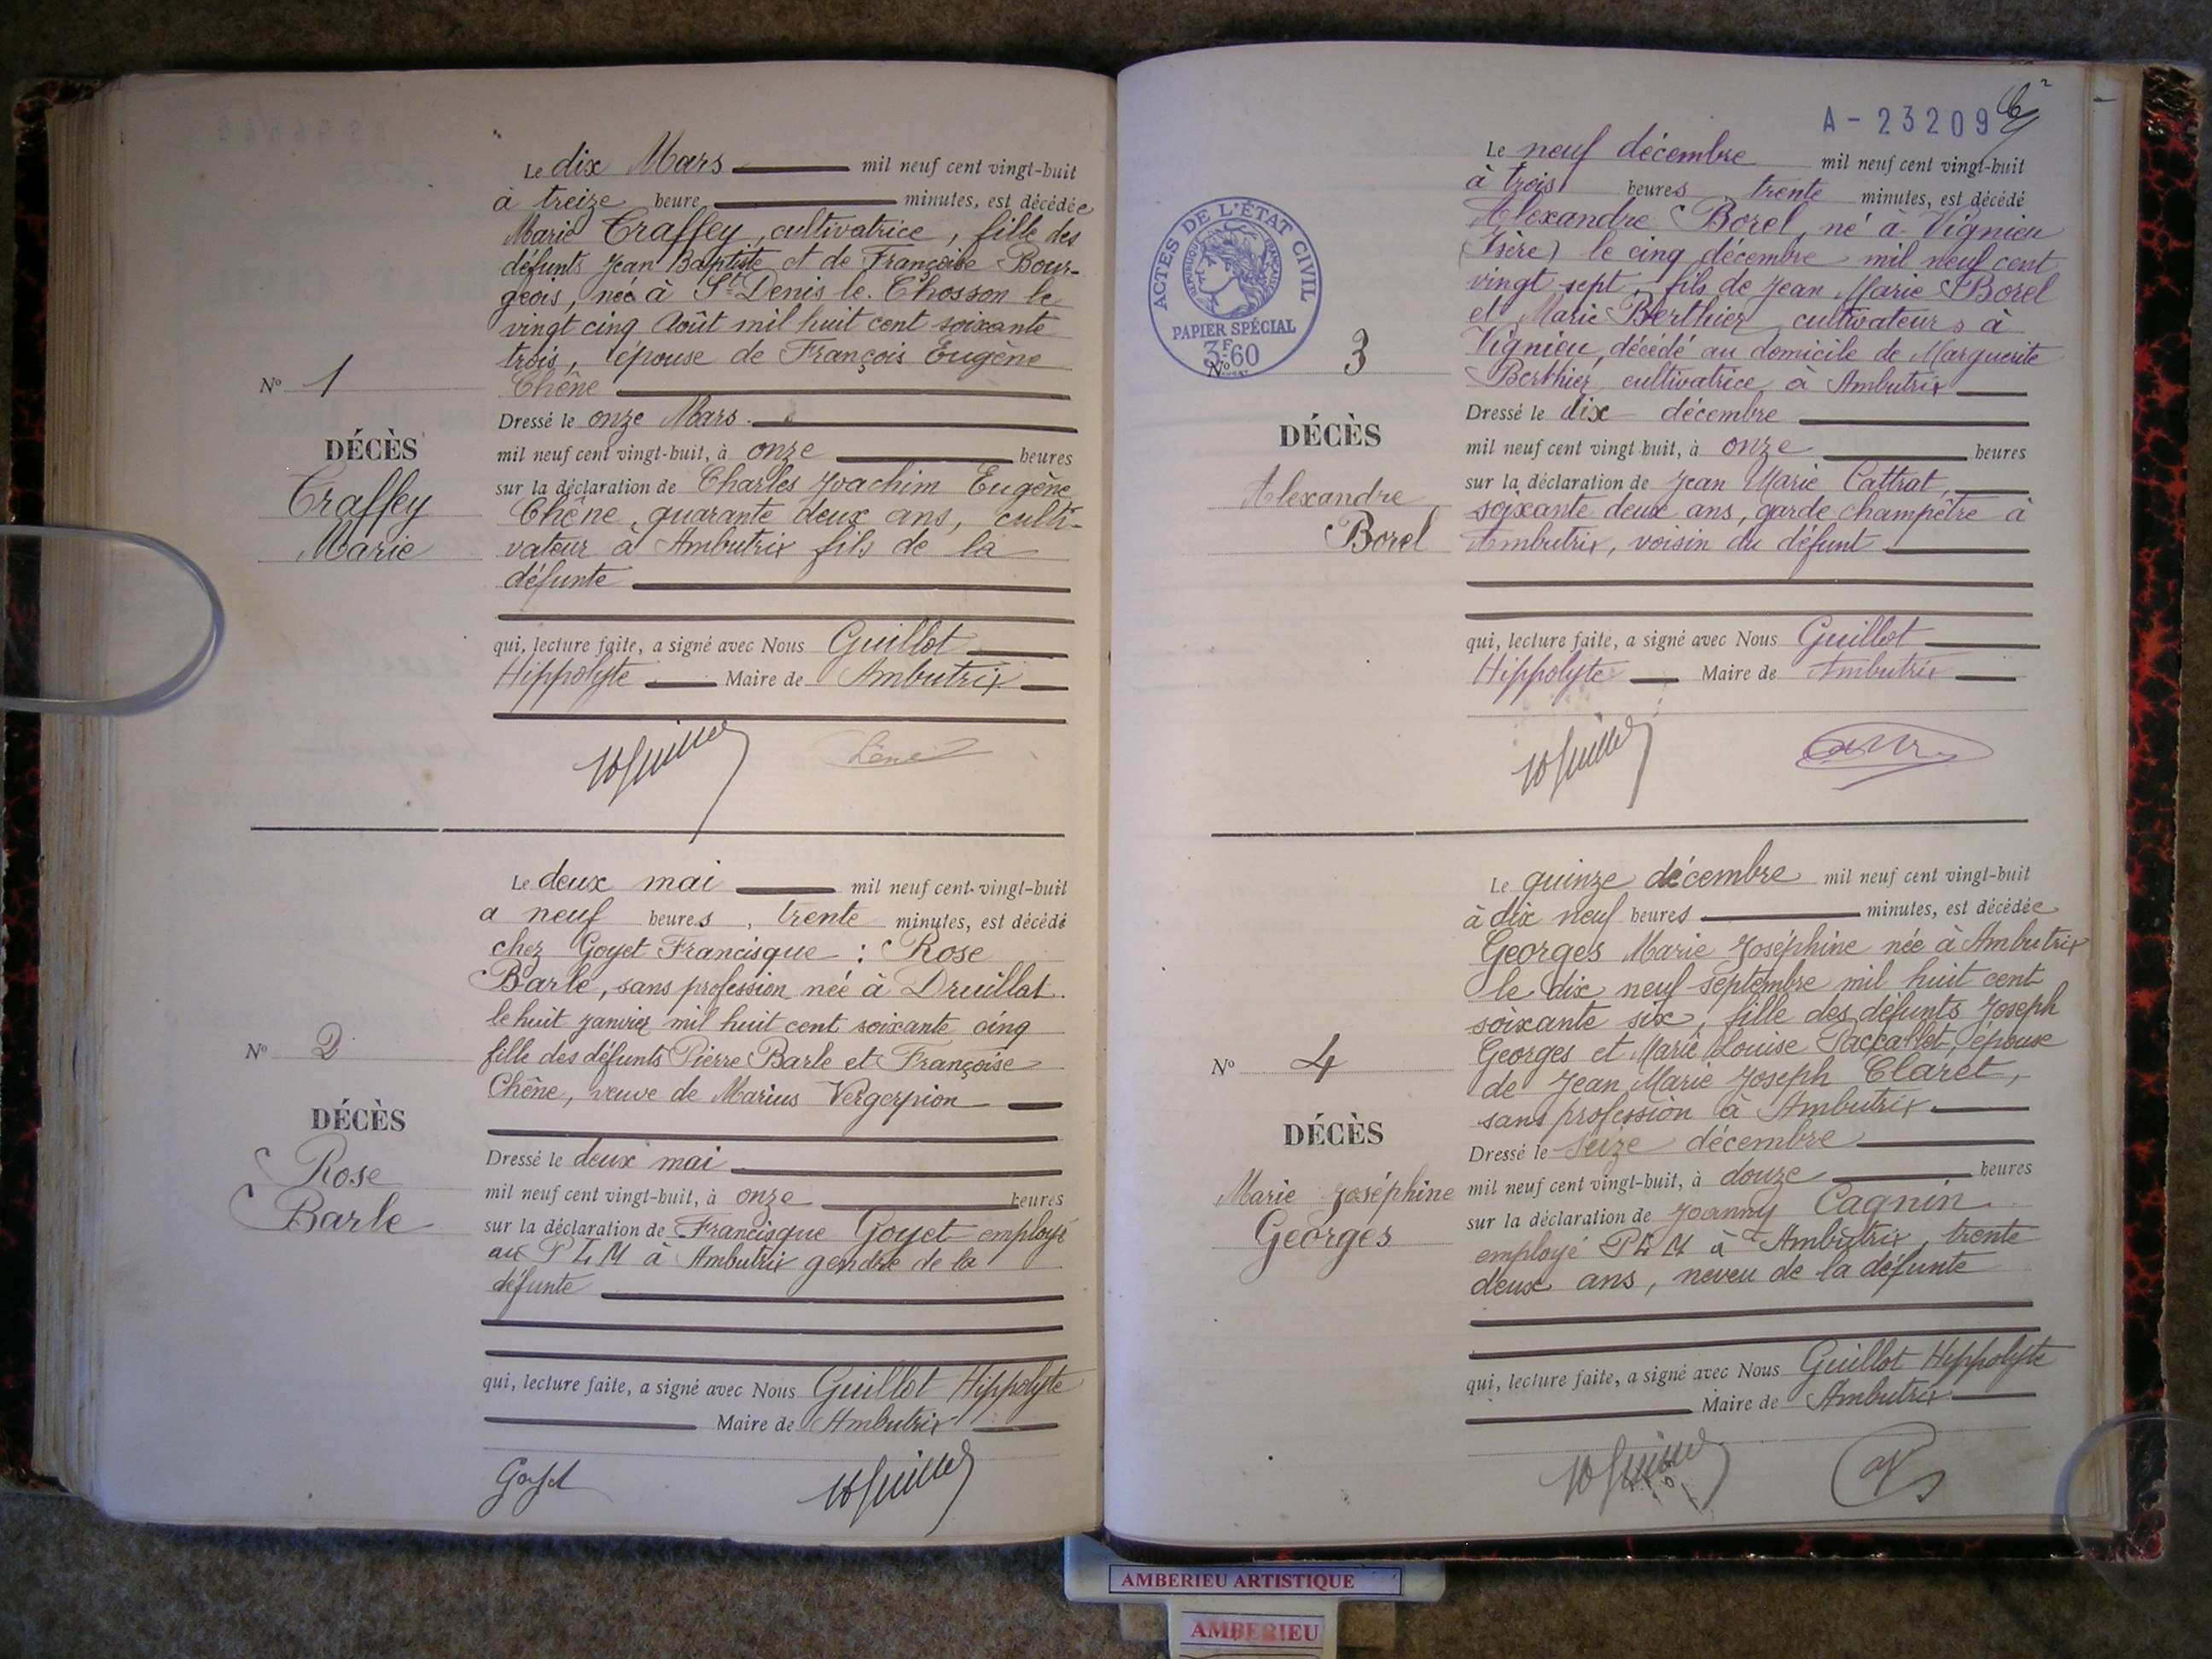 Le dix Mars mil neuf cent vingt-huit
à treize heure minutes, est décédée
Marie Traffey, cultivatrice, fille des
défunts Jean Baptiste et de Françoise Bour-
geois, née à St Denis le Chosson le
vingt cinq Août mil huit cent soixante
trois, épouse de François Eugène
Chêne
Nº 1
DÉCÈS
Traffey
Marie
Dressé le onze Mars
mil neuf cent vingt-huit, à onze heures
sur la déclaration de Charles Joachim Eugène
Chêne, quarante deux ans, culti-
vateur à Ambutrix fils de la
défunte
qui, lecture faite, a signé avec Nous Guillot
Hippolyte Maire de Ambutrix
Le deux mai mil neuf cent-vingt-huit
a neuf heures, trente minutes, est décédé
chez Goyet Francisque : Rose
Barle, sans profession née à Druillat
le huit janvier mil huit cent soixante cinq
fille des défunts Pierre Barle et Françoise
Chêne, veuve de Marius Vergerpion
Nº 2
DÉCÈS
Rose
Barle
Dressé le deux mai
mil neuf cent vingt-huit, à onze heures
sur la déclaration de Francisque Goyet employé
au PLM à Ambutrix gendre de la
défunte
qui, lecture faite, a signé avec Nous Guillot Hippolyte
Maire de Ambutrix
Goyet
A-23209
Le neuf décembre mil neuf cent vingt-huit
à trois heures trente minutes, est décédé
Alexandre Borel, né à Vignieu
(Isère) le cinq décembre mil neuf cent
vingt sept, fils de Jean Marie Borel
et Marie Berthier cultivateurs à
Vignieu, décédé au domicile de Marguerite
Berthier, cultivatrice à Ambutrix
ACTES DE L'ÉTAT CIVIL
RÉPUBLIQUE FRANÇAISE
PAPIER SPÉCIAL
3F.60
Nº 3
DÉCÈS
Alexandre
Borel
Dressé le dix décembre
mil neuf cent vingt huit, à onze heures
sur la déclaration de Jean Marie Cattrat,
soixante deux ans, garde champêtre à
Ambutrix, voisin du défunt
qui, lecture faite, a signé avec Nous Guillot
Hippolyte Maire de Ambutrix
Le quinze décembre mil neuf cent vingt-huit
à dix neuf heures minutes, est décédée
Georges Marie Joséphine née à Ambutrix
le dix neuf septembre mil huit cent
soixante six, fille des défunts Joseph
Georges et Marie Louise Paccallet, épouse
de Jean Marie Joseph Claret,
sans profession à Ambutrix
Nº 4
DÉCÈS
Marie Joséphine
Georges
Dressé le seize décembre
mil neuf cent vingt-huit, à douze heures
sur la déclaration de Joanny Cagnin
employé PLM à Ambutrix, trente
deux ans, neveu de la défunte
qui, lecture faite, a signé avec Nous Guillot Hippolyte
Maire de Ambutrix
AMBERIEU ARTISTIQUE
AMBERIEU